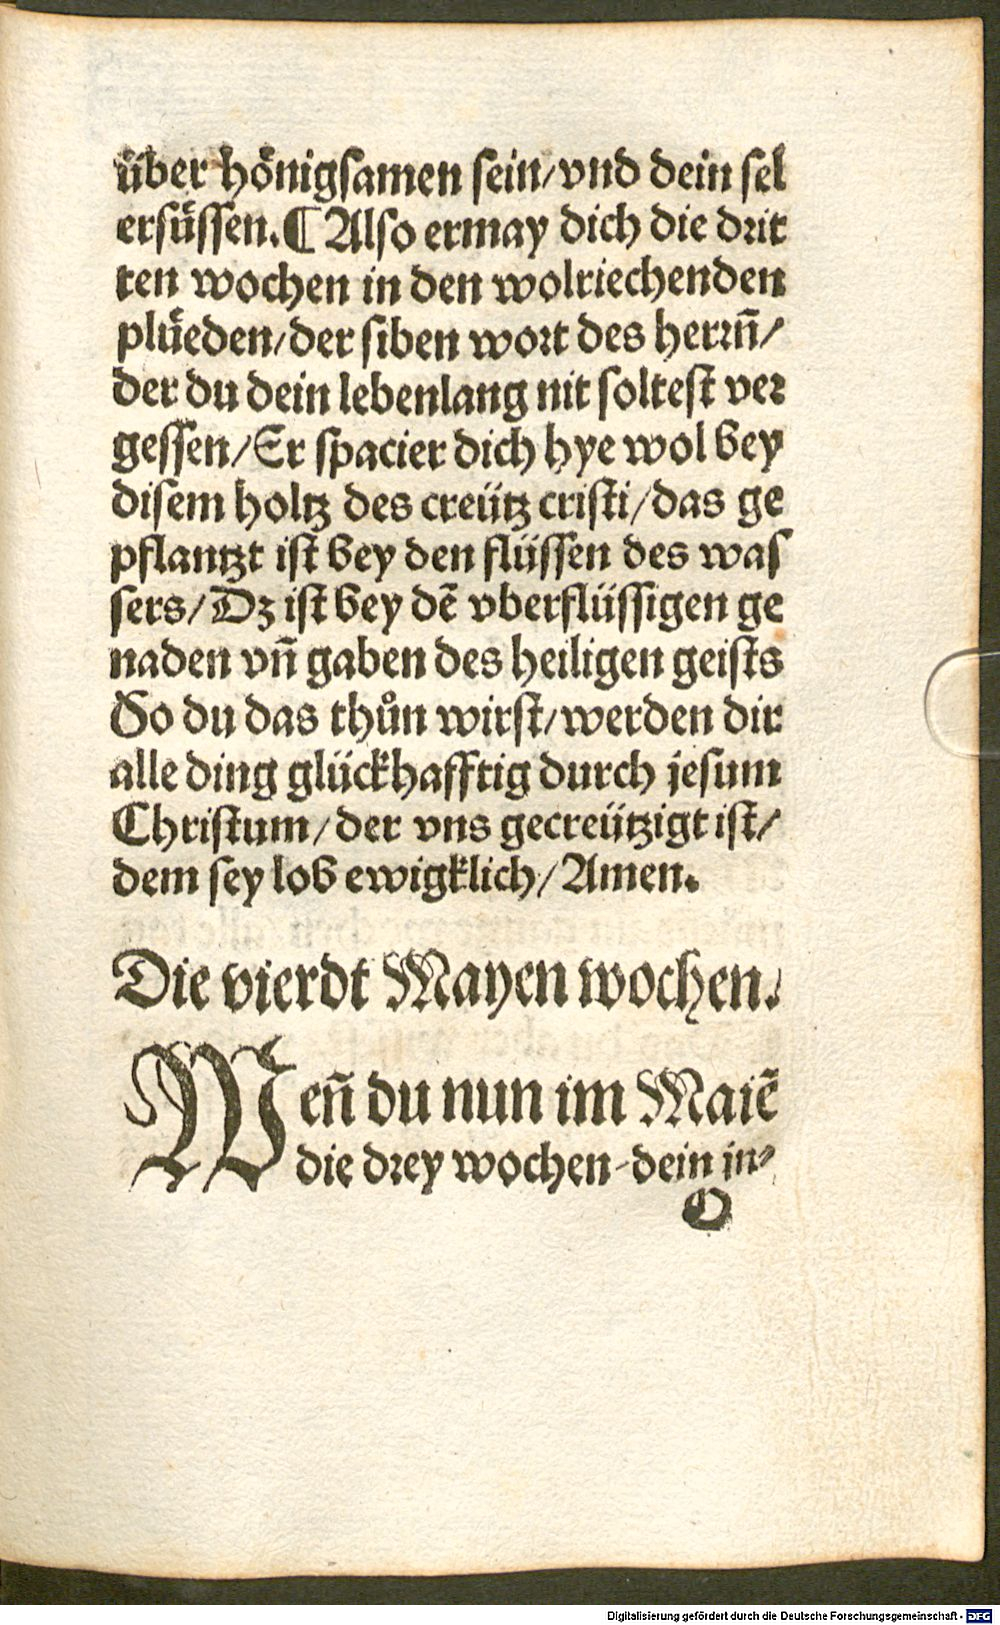 über hönigsamen sein/vnd dein sel
ersüssen.¶ Also ermay dich die drit
ten wochen in den wolriechenden
plüeden/der siben wort des herrn̄/
der du dein lebenlang nit soltest ver
gessen/Er spacier dich hye wol bey
disem holtz des creütz cristi/das ge
pflantzt ist bey den flüssen des was
sers/Dz ist bey dē vberflüssigen ge
naden vn̄ gaben des heiligen geists
So du das thůn wirst/werden dir
alle ding glückhafftig durch jesum
Christum/der vns gecreützigt ist/
dem sey lob ewigklich/Amen.
Die vierdt Mayen wochen.
Wen̄ du nun im Maiē
die drey wochen dein in⸗
O
Digitalisierung gefördert durch die Deutsche Forschungsgemeinschaft - DFG